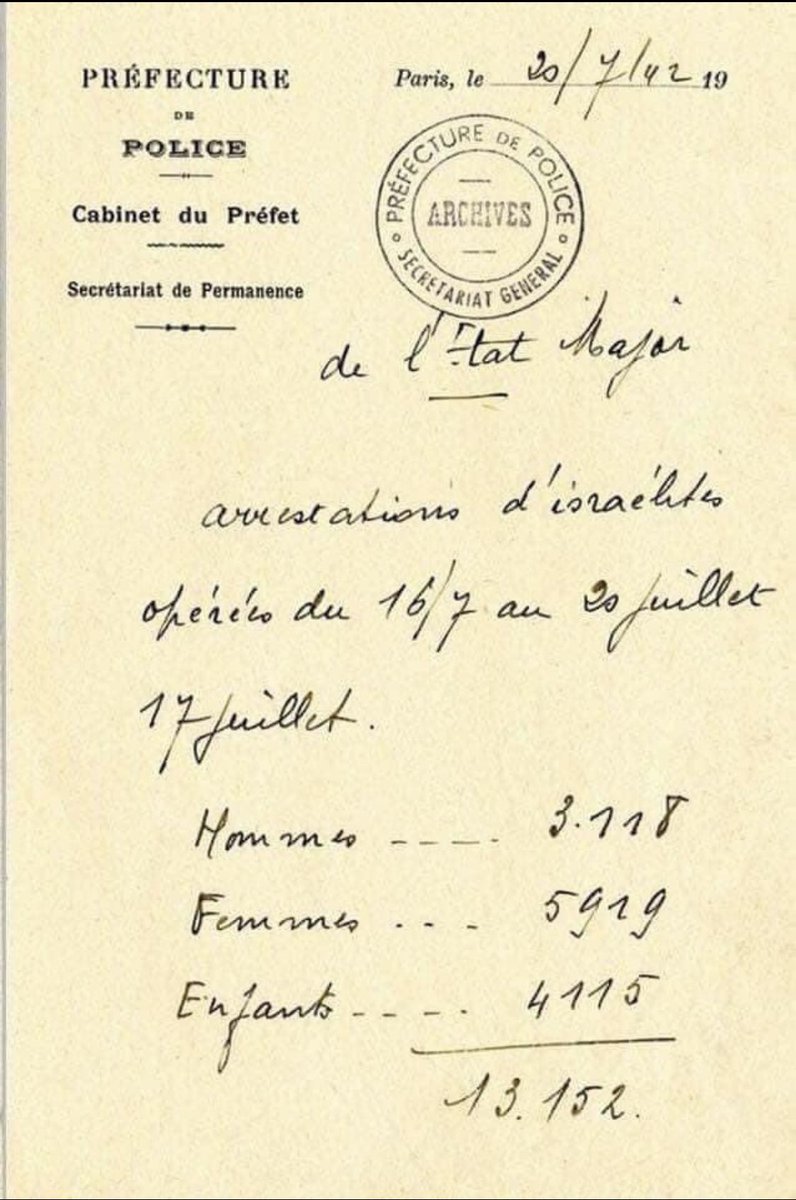 PRÉFECTURE
DE
POLICE
Cabinet du Préfet
Secrétariat de Permanence
Paris, le 20/7/42 19
PRÉFECTURE DE POLICE
ARCHIVES
SECRETARIAT GENERAL
de l'État Major
arrestations d'israélites
opérées du 16/7 au 20 juillet
17 juillet.
Hommes ---- 3.118
Femmes --- 5919
Enfants ---- 4115
13.152.